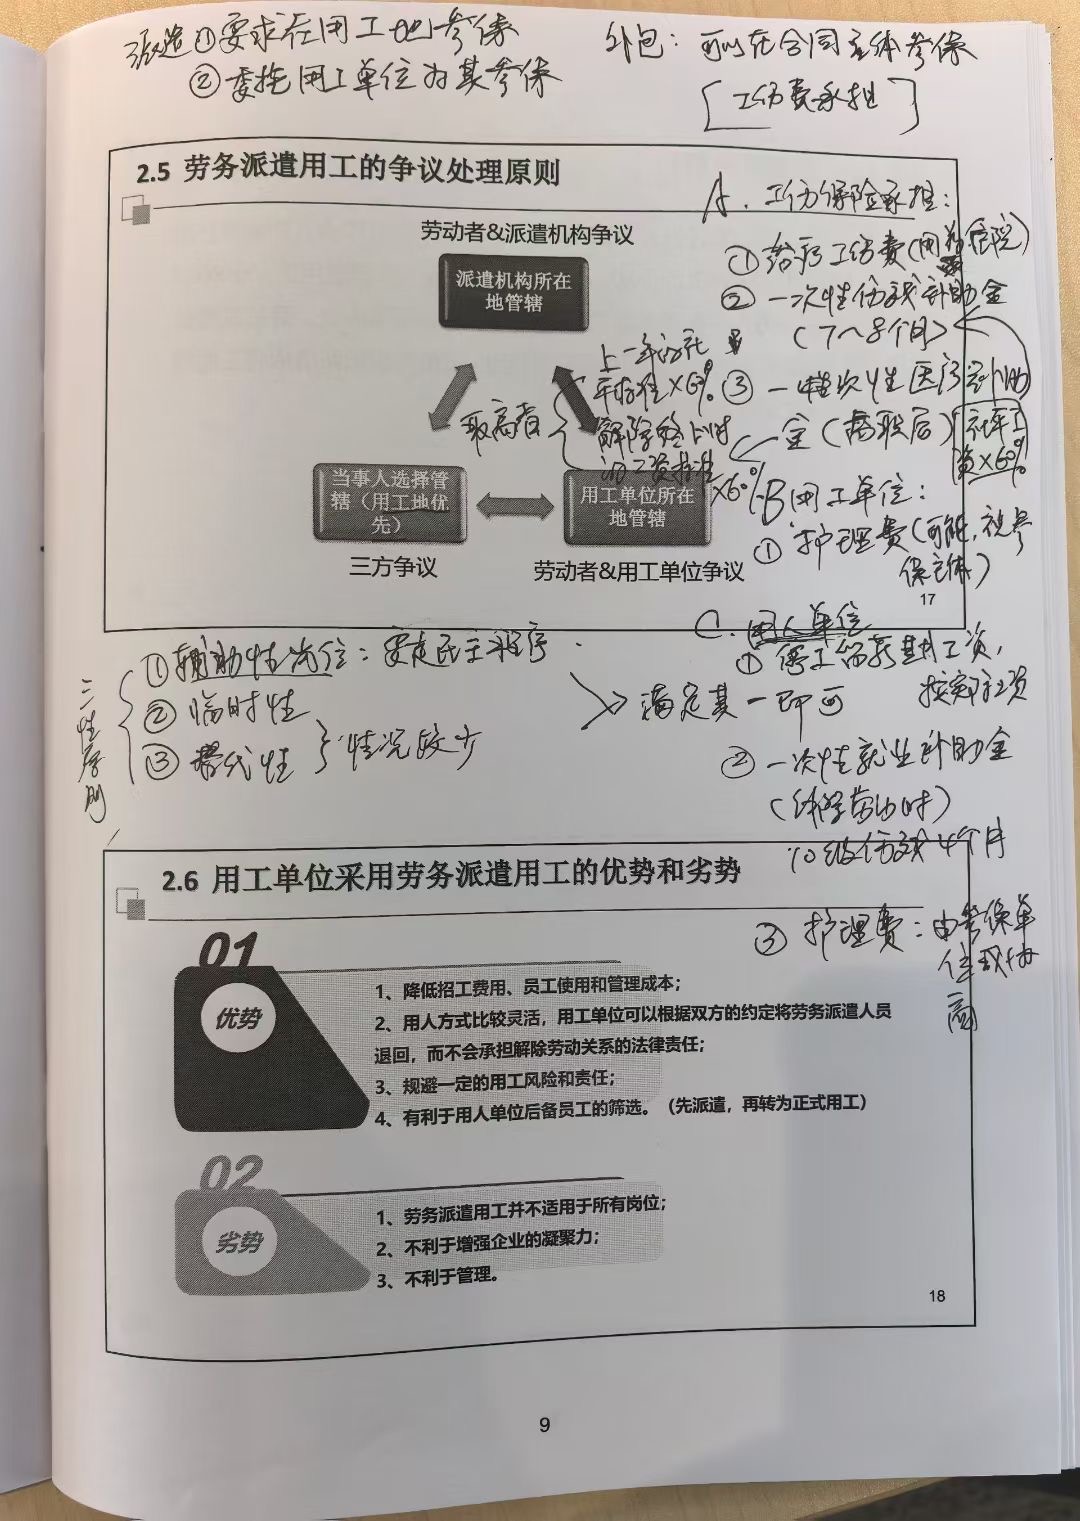 派遣①要求在用工地参保
②委托用工单位为其参保
外包：可以在合同主体参保
[工伤费承担]
2.5 劳务派遣用工的争议处理原则
劳动者&派遣机构争议
派遣机构所在
地管辖
当事人选择管
辖（用工地优
先）
三方争议
用工单位所在
地管辖
劳动者&用工单位争议
17
取高者
上一年
×60%
解除终止时
×60%
A. 工伤保险承担：
①治疗工伤费
②一次性伤残补助金
（7～8个月）
③一次性医疗补助
金（离职后）
资×60%
B用工单位：
①护理费（可能，视参
保主体）
C. 用人单位
①停工留薪期工资，
按实际工资
②一次性就业补助金
（解除劳动时）
10级伤残4个月
③护理费：由参保单
位或协
商
三性原则
①辅助性岗位：要走民主程序
②临时性
③替代性
情况较少
满足其一即可
2.6 用工单位采用劳务派遣用工的优势和劣势
01
优势
1、降低招工费用、员工使用和管理成本；
2、用人方式比较灵活，用工单位可以根据双方的约定将劳务派遣人员
退回，而不会承担解除劳动关系的法律责任；
3、规避一定的用工风险和责任；
4、有利于用人单位后备员工的筛选。（先派遣，再转为正式用工）
02
劣势
1、劳务派遣用工并不适用于所有岗位；
2、不利于增强企业的凝聚力；
3、不利于管理。
18
9